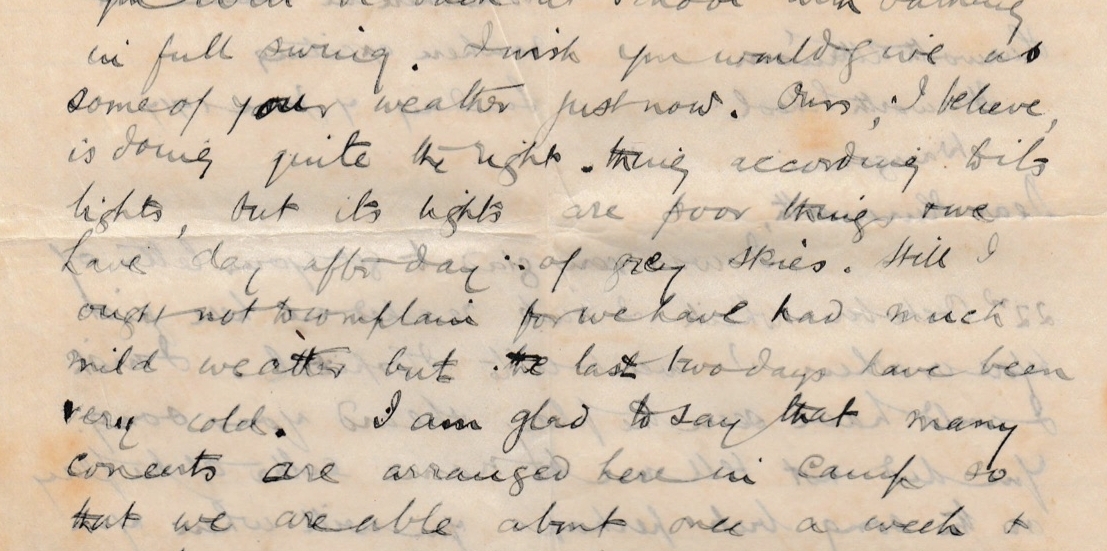 you will be back at school with bathing
in full swing. I wish you would give us
some of your weather just now. Ours, I believe,
is doing quite the right thing according to its
lights, but its lights are poor things & we
have day after day of grey skies. Still I
ought not to complain for we have had much
mild weather but the last two days have been
very cold. I am glad to say that many
concerts are arranged here in Camp so
that we are able about once a week &